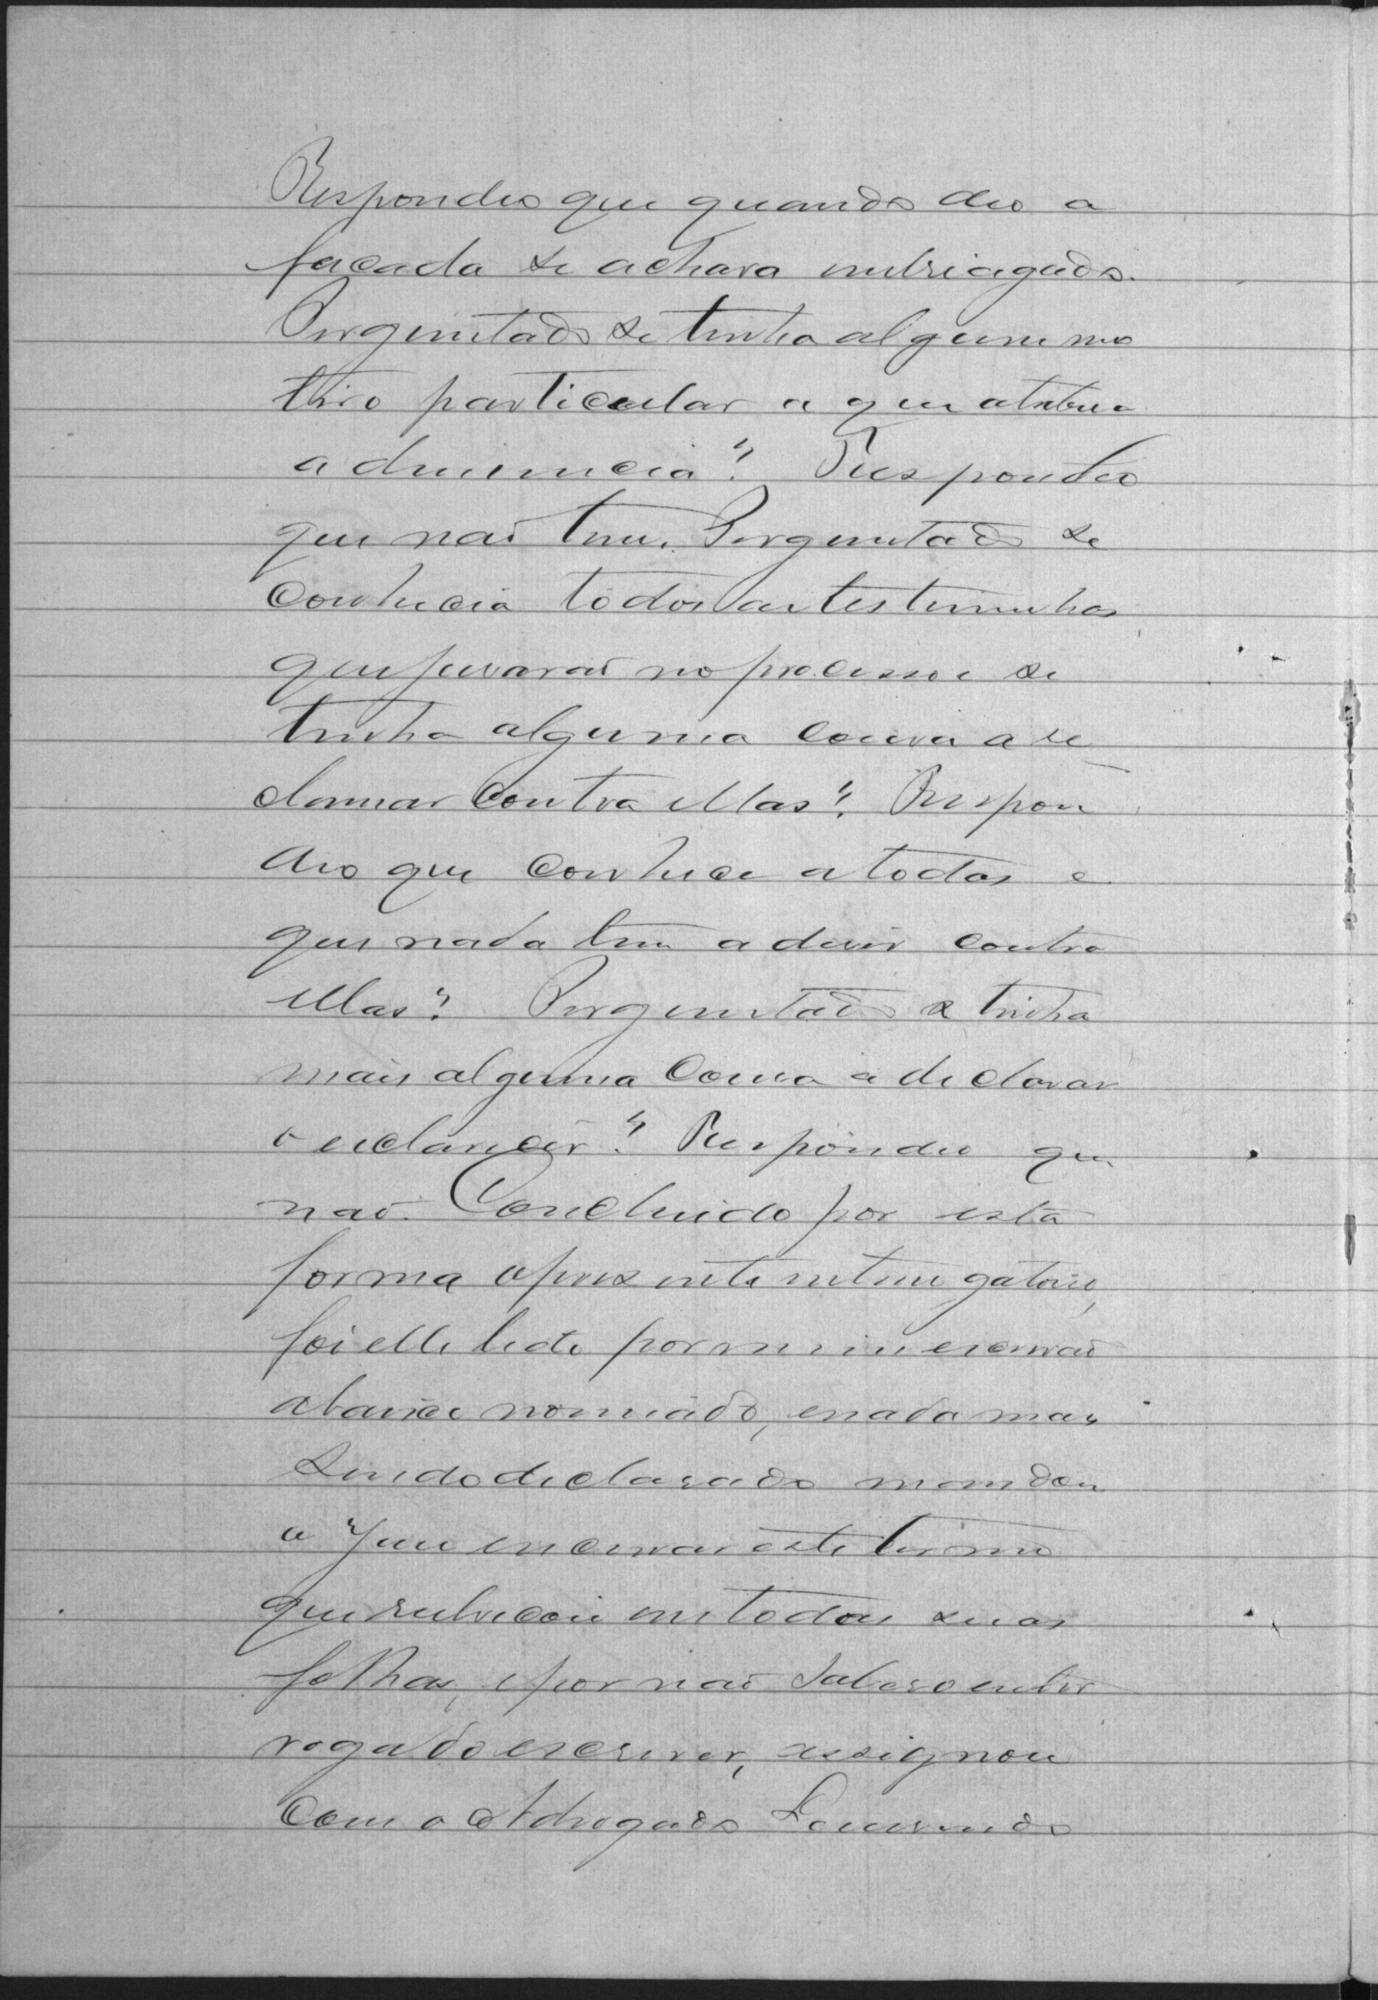 Respondeo que quando deo a
facada se achava embriagado.
Perguntado se tinha algum mo
tivo particular a que atribua
a denuncia? Respondeo
que não tem. Perguntado se
conhecia todos as testimunhas
que juraraõ no processo e se
tinha alguma cousa a re
clamar contra ellas? Respon
deo que conhece a todas e
que nada tem a dizer contra
ellas? Perguntado se tinha
mais alguma cousa a declarar
e esclarecer? Respondeo que
naõ. Concluido por esta
forma o presente interrogatorio,
foi elle lido por mim escrivaõ
abaixo nomiado, e nada mais
sendo declarado mandou
o Juiz encerrar este termo
que rubricou em todas suas
folhas, e por naõ saber o enter
rogado escrever, assignou
com o Advogado Lourenço